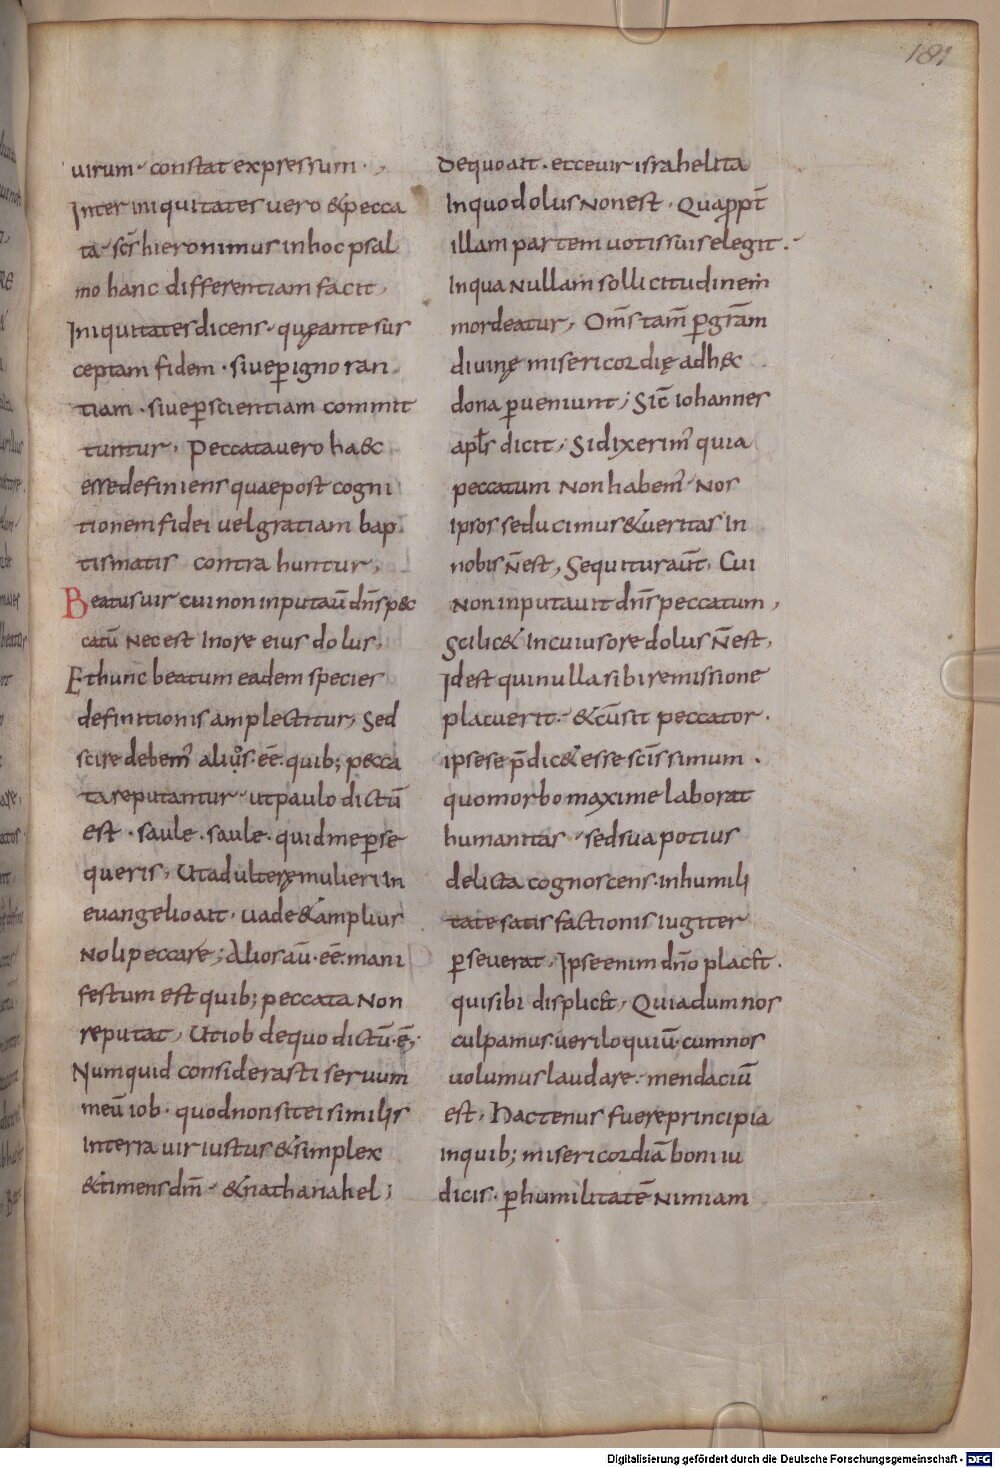 181
uirum· constat expressum·,
Inter iniquitates uero &pecca
ta· scs̄ hieronimus inhoc psal
mo hanc differentiam facit,
Iniquitates dicens· quęante sus
ceptam fidem· siue ꝑ igno ran
tiam· siue ꝑ scientiam commit
tuntur, Peccata uero ha&c
esse definiens quae post cogni
tionem fidei uel gratiam bap
tismatis contra huntur,
Beatus uir cui non inputau̅ dn̄s p&c
catū Nec est Inore eius dolus,
Et hunc beatum eadem species
definitionis amplectitur, Sed
scire debem᾿ aliųos· ēē· quib; p&cca
ta reputantur· ut paulo dictū
est· saule· saule· quid me ꝑse
queris, Ut adulterę mulieri In
euangelio ait· uade &amplius
Noli peccare; Alios aū· ēē· mani
festum est quib; peccata Non
reputat, Ut iob de quo dictū·ē,·
Numquid considerasti seruum
meū iob· quod non sit ei similis
Interra uir iustus &simplex
&timens dm̄· &nathanahel;
De quo ait· ecce uir israhelita
In quo dolus Non est· Qua ꝓpt̄
illam partem uotis suis elegit.·
In qua Nullam sollicitudinem
mordeatur, Om̄s tam̄ ꝑ grām
diuinę misericordię ad h&c
dona ꝑueniunt; Sic̄ iohannes
apłs dicit, Si dixerim᾿ quia
peccatum Non habem᾿· Nos
ipsos seducimus &ueritas In
nobis n̄ est, Sequitur aūt· Cui
Non inputauit dn̄s peccatum,
Scilic& In cuius ore dolus n̄ est,
Id est qui nulla sibi remissione
placuerit·· &cū sit peccator·
ipse se p̄dic& esse scīssimum·
quo morbo maxime laborat
humanitas· sed sua potius
delicta cognoscens· in humili
tate satis factionis iugiter
ꝑseuerat· Ipse enim dn̄o plac̄&·
qui sibi displic̄&, Quia dum nos
culpamus· ueriloquiū· cum nos
uolumus laudare· mendaciū
est, Hactenus fuere principia
in quib; misericordiā boni iu
dicis· ꝑ humilitatē Nimiam
Digitalisierung gefördert durch die Deutsche Forschungsgemeinschaft - DFG